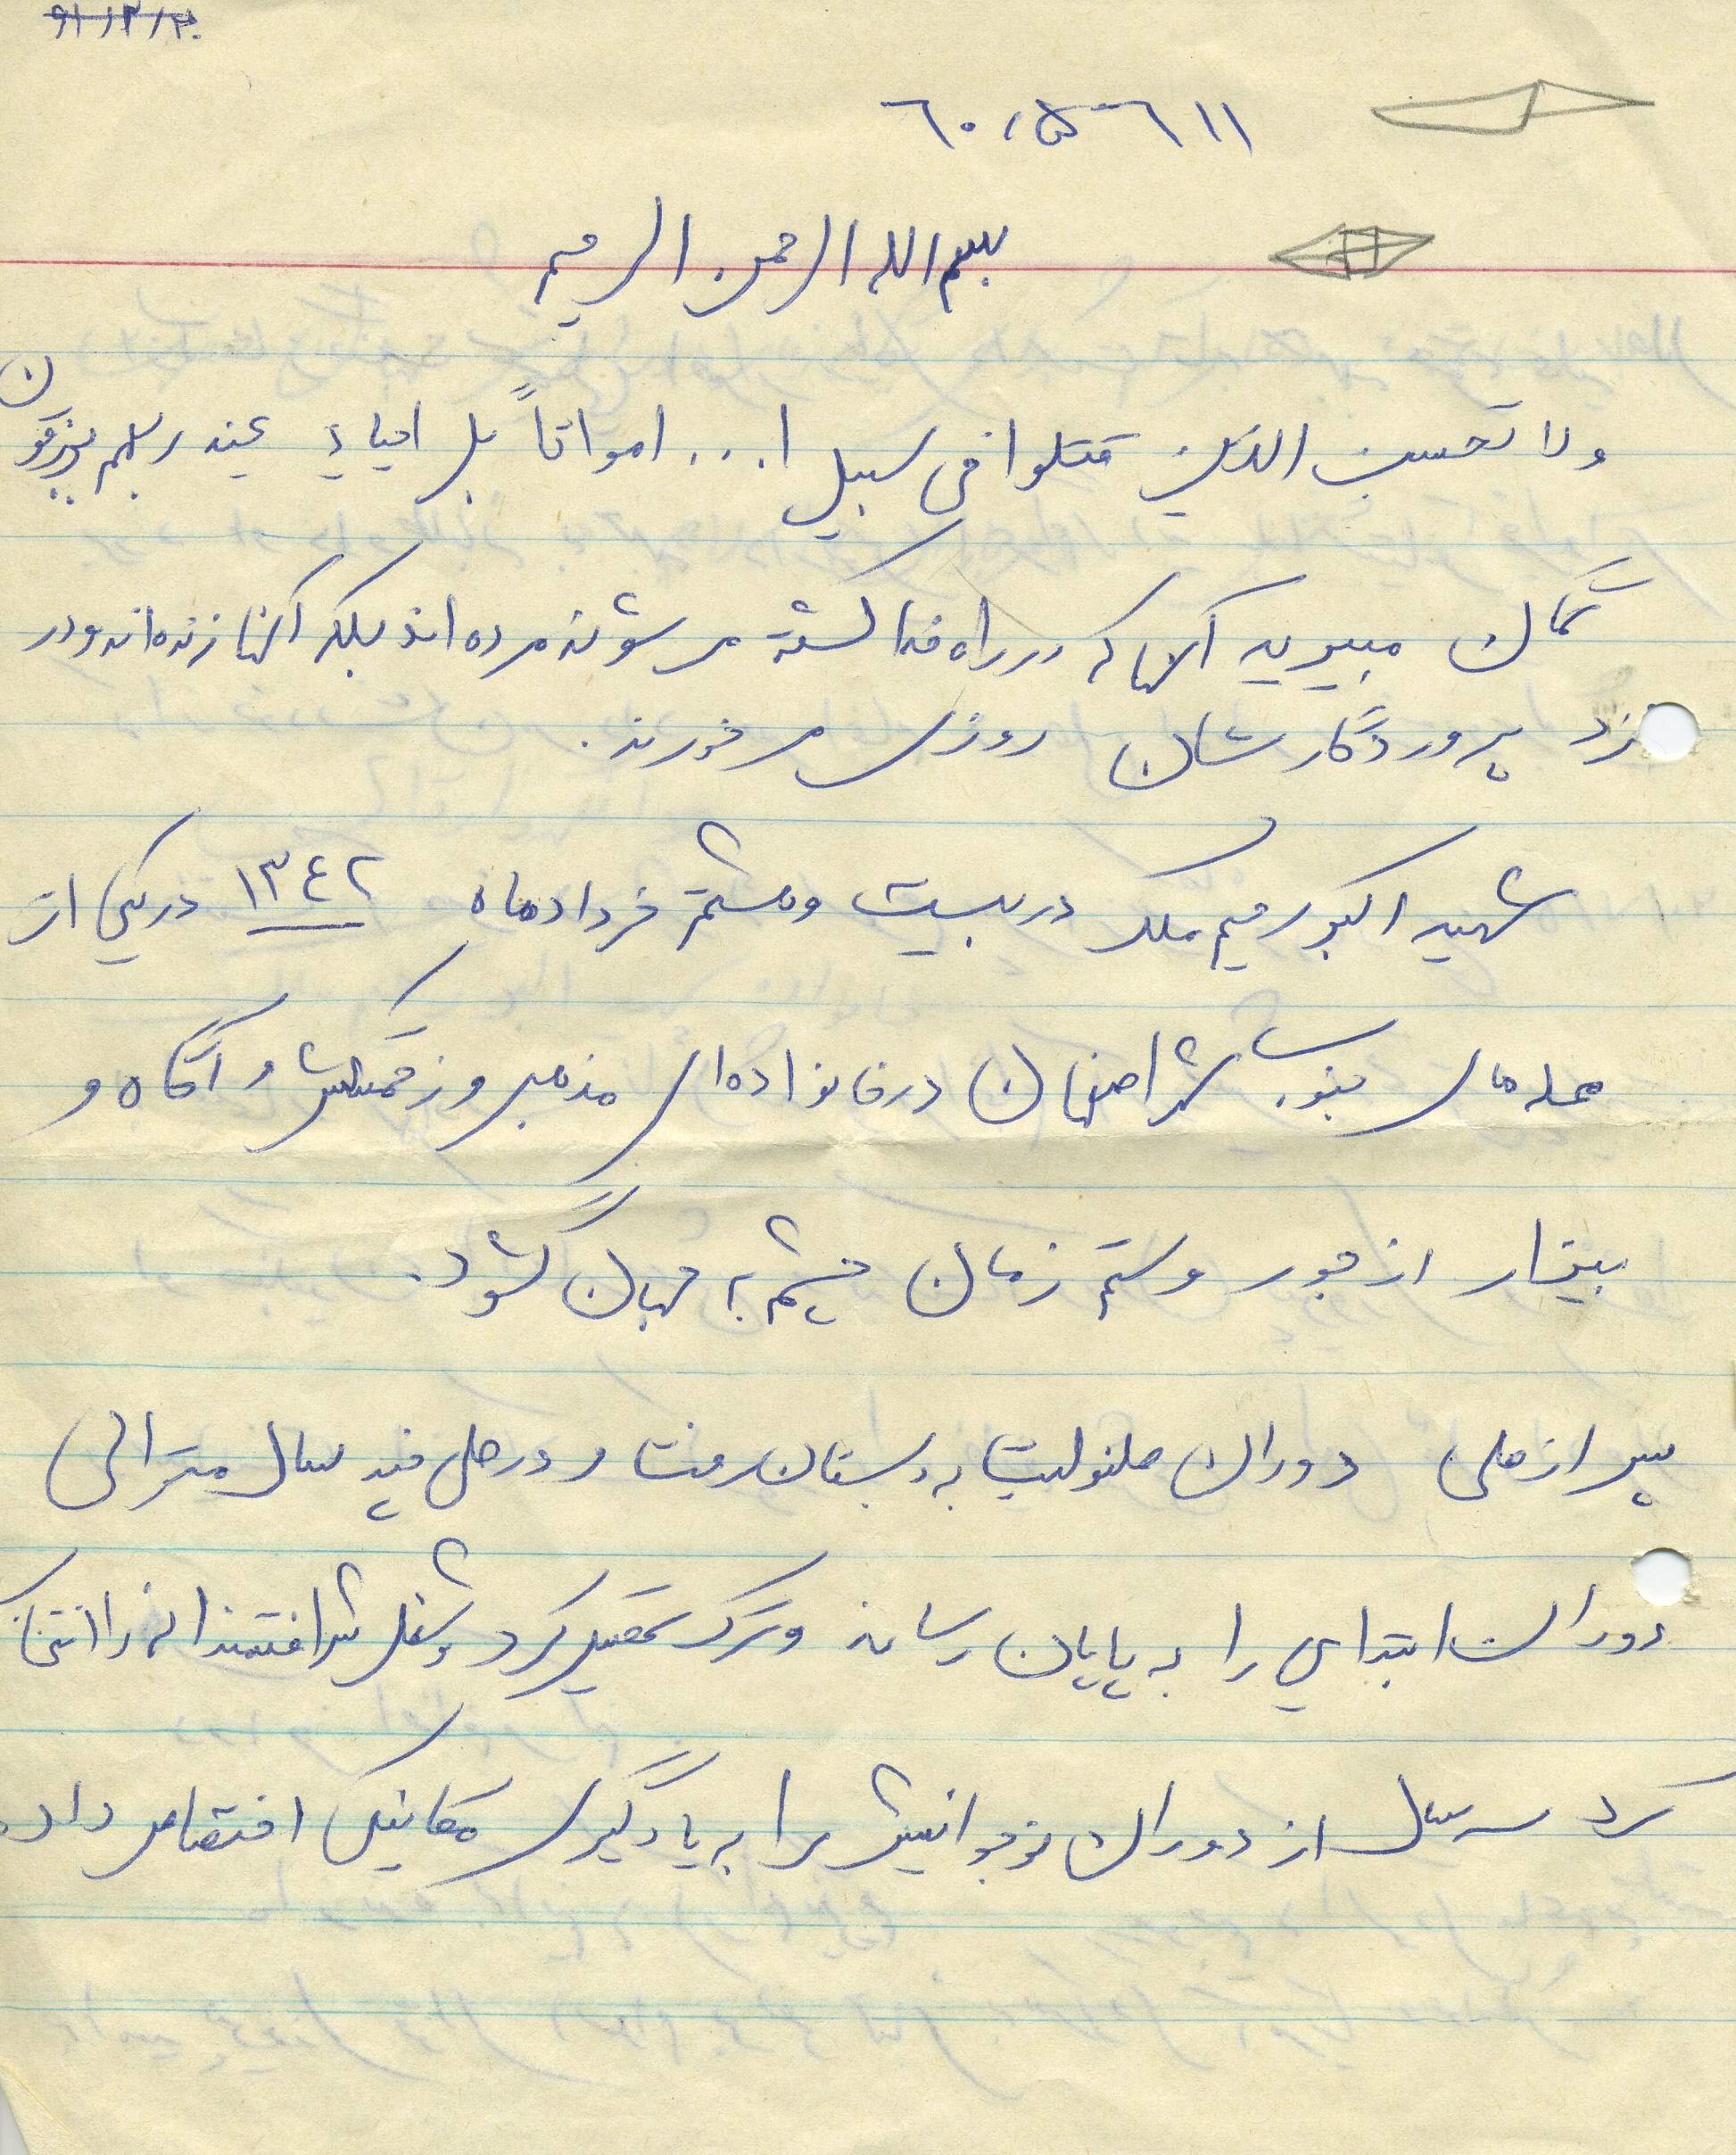 ۹۱/۳/۲۰
۶۰۱۵۶۱۱
بسم الله الرحمن الرحیم
ولا تحسبن الذین قتلوا فی سبیل ا... امواتاً بل احیاءٌ عند ربهم یرزقون
گمان مبرید آنها که در راه خدا کشته می شوند مرده اند بلکه آنها زنده اند و در
نزد پروردگارشان روزی می خورند.
شهید اکبر رحیم ملک در بیست و هشتم خرداد ماه ۱۳۴۲ در یکی از
محله های جنوب شهر اصفهان در خانواده ای مذهبی و زحمتکش و آگاه و
بیزار از جور و ستم زمان چشم به جهان گشود.
پس از طی دوران طفولیت به دبستان رفت و در طی چند سال متوالی
دوران ابتدایی را به پایان رساند و ترک تحصیل کرد و شغل شرافتمندانه را انتخاب
کرد سه سال از دوران نوجوانیش را به یادگیری مکانیکی اختصاص داد.